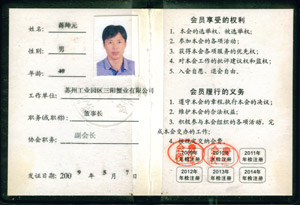 姓名：蒋坤元
性别：男
年龄：
工作单位：苏州工业园区三阳置业有限公司
职务(或职称)：董事长
协会职务：副会长
发证日期：2009年8月 日
会员享受的权利
1．本会的选举权、被选举权；
2．参加本会的各项活动；
3．获得本会各项服务的优先权；
4．对本会工作的批评建议权和监督权；
5．入会自愿、退会自由。
会员履行的义务
1．遵守本会的章程，执行本会的决议；
2．维护本会的合法权益；
3．积极参与本会组织的各项活动，完成本会交办的工作；
4．按规定交纳会费。
2009年年检注册
2010年年检注册
2011年年检注册
2012年年检注册
2013年年检注册
2014年年检注册